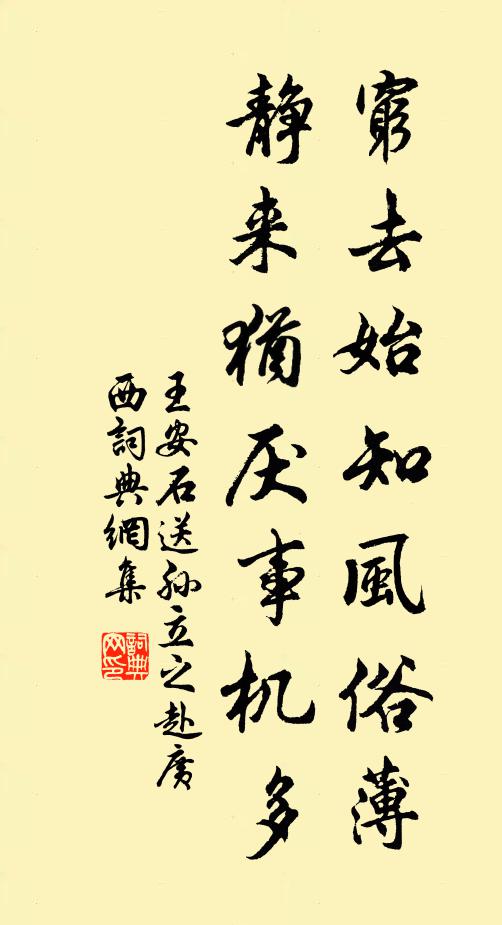 窮去始知風俗薄
静来猶厌事机多
王安石送孙立之赴廣
西詞典網集
詞典网印